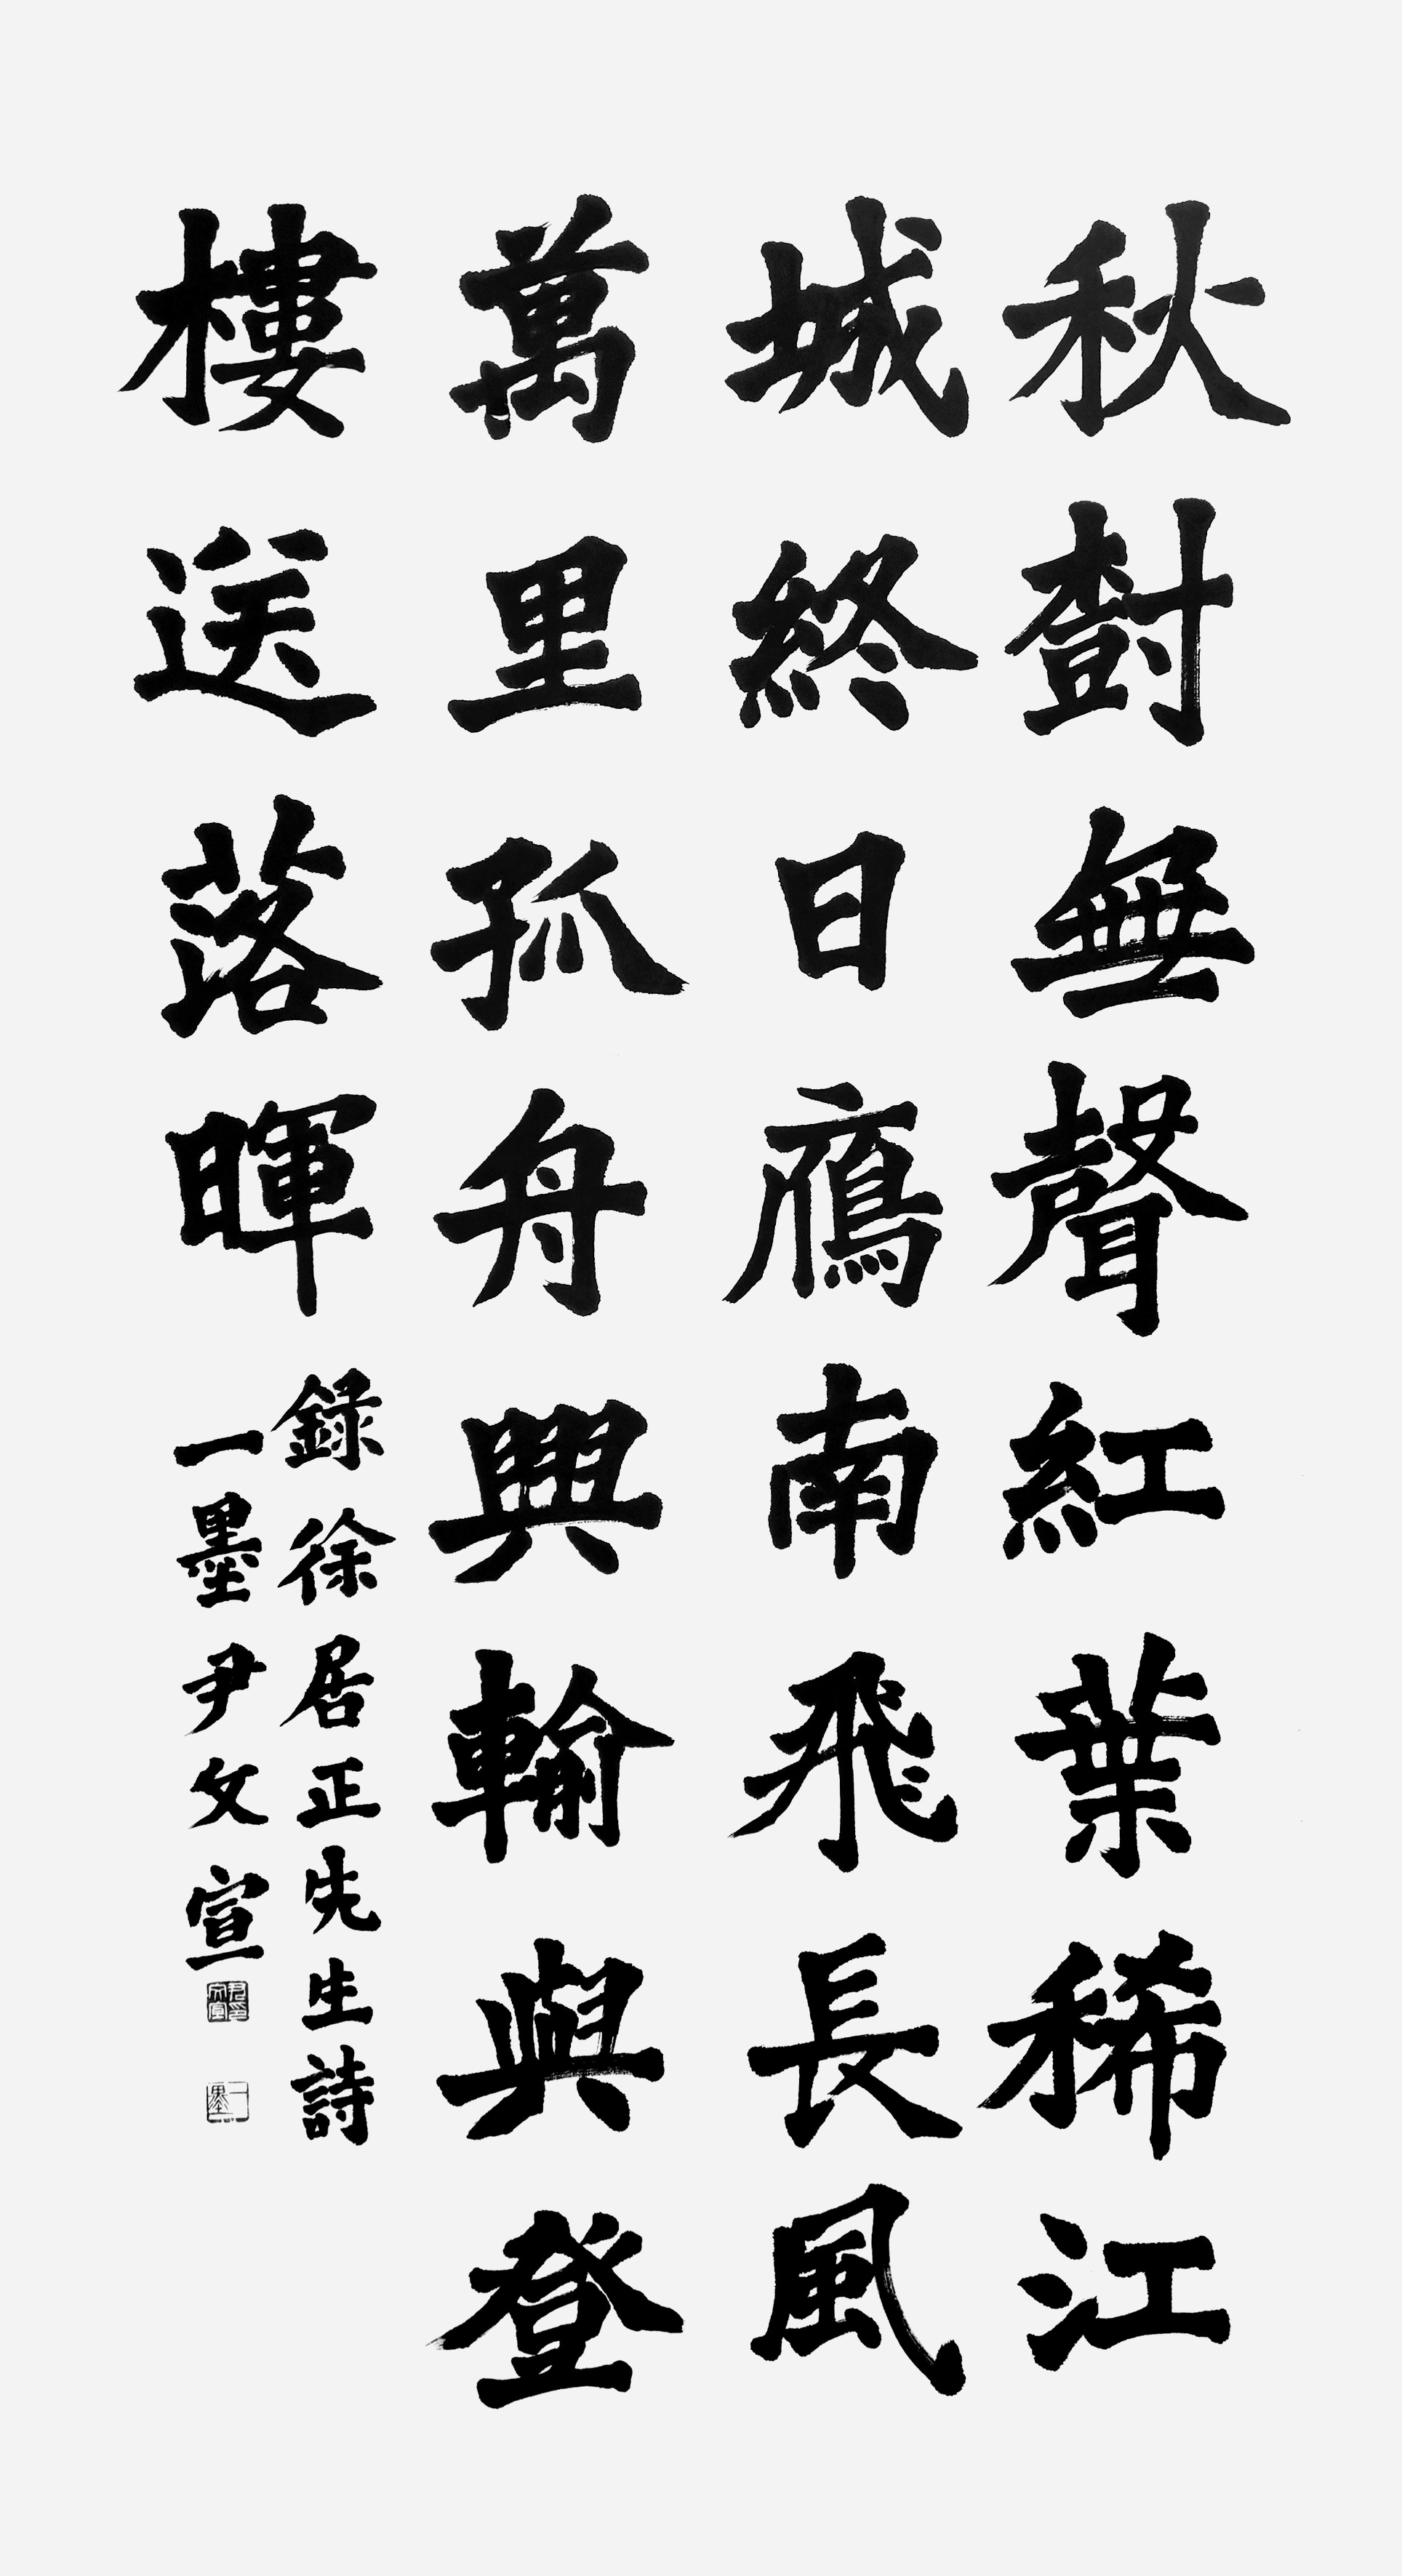 秋樹無聲紅葉稀江
城終日鴈南飛長風
萬里孤舟興輸與登
樓送落暉
錄徐居正先生詩
一墨尹文宣